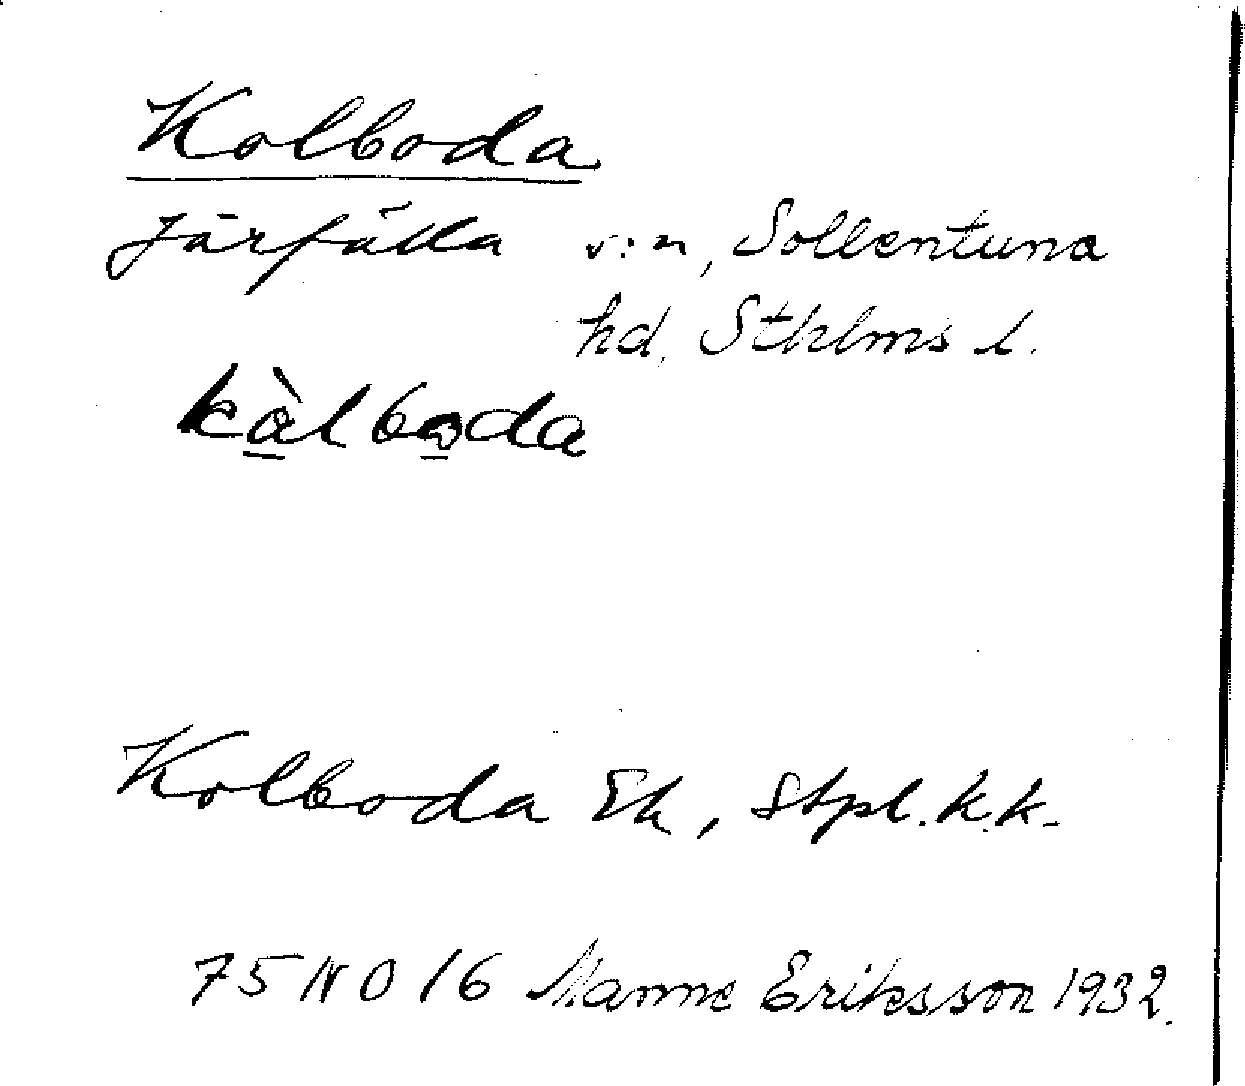 Kolboda
Järfälla s:n, Sollentuna
hd, Sthlms l.
kàlboda
Kolboda Ek, Stpl. k.k.
75 NO 16 Manne Eriksson 1932.